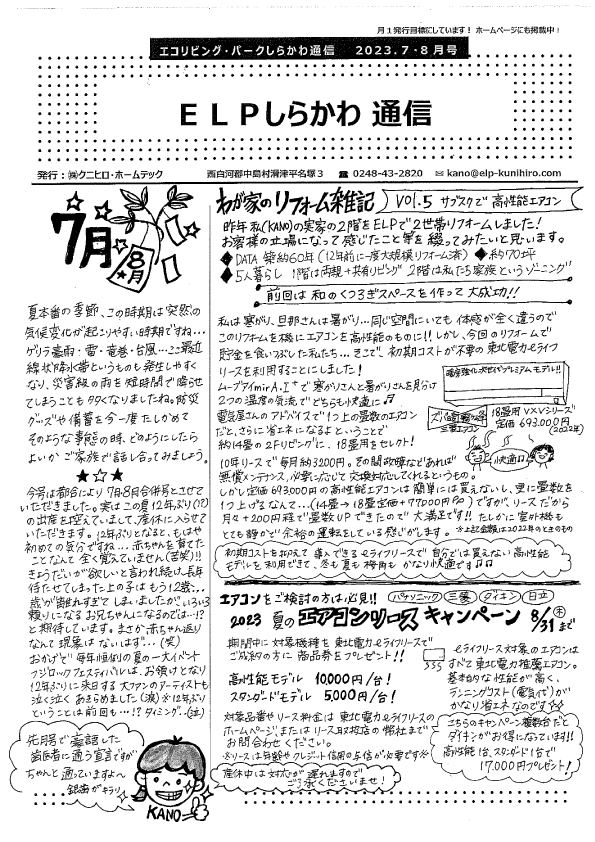 月1発行目標にしています! ホームページにも掲載中!
エコリビング・パークしらかわ通信 2023.7・8月号
ELPしらかわ 通信
発行:㈱クニヒロ・ホームテック 西白河郡中島村滑津平名塚3 ☎ 0248-43-2820 ✉ kano@elp-kunihiro.com
7月/8月
夏本番の季節、この時期は突然の
気候変化が起こりやすい時期ですね…
ゲリラ豪雨・雷・竜巻・台風…ここ最近
線状降水帯というものも発生しやすく
なり、災害級の雨を短時間で降らせ
てしまうことも多くなりましたね。防災
グッズや備蓄を今一度たしかめて
そのような事態の時、どのようにしたら
よいかご家族で話し合ってみましょう。
★☆★
今号は都合により7月8月合併号とさせて
いただきました。実はこの夏12年ぶり(!?)
の出産を控えていまして、産休に入らせて
いただきます。12年ぶりとなると、もはや
初めての気分ですね…赤ちゃんを育てた
ことなんて全く覚えていません(苦笑)!!
きょうだいが欲しいと言われ続け…長年
待たせてしまった上の子はもう12歳…。
歳が離れすぎてしまいましたが、いろいろ
頼りになるお兄ちゃんになるのでは…!?
と期待しています。まさか、赤ちゃん返り
なんて現象はないはず…(笑)
おかげで毎年恒例の夏の一大イベント
フジロックフェスティバルは、お預けとなり
12年ぶりに来日する大ファンのアーティストも
泣く泣くあきらめました(涙)※12年ぶり
ということは前回も…!?タイミング…(泣)
先月号で宣言した
歯医者に通う宣言ですが
ちゃんと通っていますよ〜
銀歯がキラリ
KANO
わが家のリフォーム雑記 VOL.5 サブスクで高性能エアコン
昨年私(KANO)の実家の2階をELPで2世帯リフォームしました!
お客様の立場になって感じたこと等を綴ってみたいと思います。
◆DATA 築約60年(12年前に一度大規模リフォーム済) ◆約70坪
◆5人暮らし 1階は両親+共有リビング 2階は私たち家族というゾーニング
前回は和のくつろぎスペースを作って大成功!!
私は寒がり、旦那さんは暑がり…同じ空間にいても体感が全く違うので
このリフォームを機にエアコンを高性能のものに!! しかし、今回のリフォームで
貯金を食いつぶした私たち… そこで、初期コストが不要の東北電力eライフ
リースを利用することにしました!
ムーブアイmirA.I.+で寒がりさんと暑がりさんを見分け
2つの温度の気流でどちらも快適に♫
電気屋さんのアドバイスで1つ上の畳数のエアコン
だと、さらに省エネになるよということで
約14畳の2Fリビングに、18畳用をセレクト!
三菱エアコン
18畳用 VXVシリーズ
定価 693,000円
(2022年)
快適♫
10年リースで毎月約3200円。その間故障などあれば
無償メンテナンス、必要に応じて交換対応してくれるというもの。
しかし定価693,000円の高性能エアコンは簡単には買えないし、更に畳数を
1つ上げるなんて…(14畳→18畳定価+77000円)ですが、リースだから
月々+200円程で畳数UPできたので大満足です!! たしかに室外機も
とても静かで余裕の運転をしている感じがします。 ※上記金額は2022年のときのもの
初期コストをおさえて導入できるeライフリースで自分では買えない高性能
モデルを利用できて、冬も夏も梅雨もかなり快適です♫♫
エアコンをご検討の方は必見!! パナソニック 三菱 ダイキン 日立
2023 夏のエアコンリースキャンペーン 8/31㊍まで
期間中に対象機種を東北電力eライフリースで
ご成約の方に商品券をプレゼント!!
高性能モデル 10,000円/台!
スタンダードモデル 5,000円/台!
対象品番やリース料金は東北電力eライフリースの
ホームページまたはリース取扱店の弊社まで
お問合わせください。
※リースは年齢やクレジット信用の与信が必要です※
産休中は対応が遅れますので
ご了承くださいませ!
eライフリース対象のエアコンは
すべて東北電力推薦エアコン。
基本的な性能が高く、
ランニングコスト(電気代)が
かなり省エネなのです☆
こちらのキャンペーン複数台だと
ダイキンがお得になっています!!
高性能1台、スタンダード1台で
17,000円プレゼント!